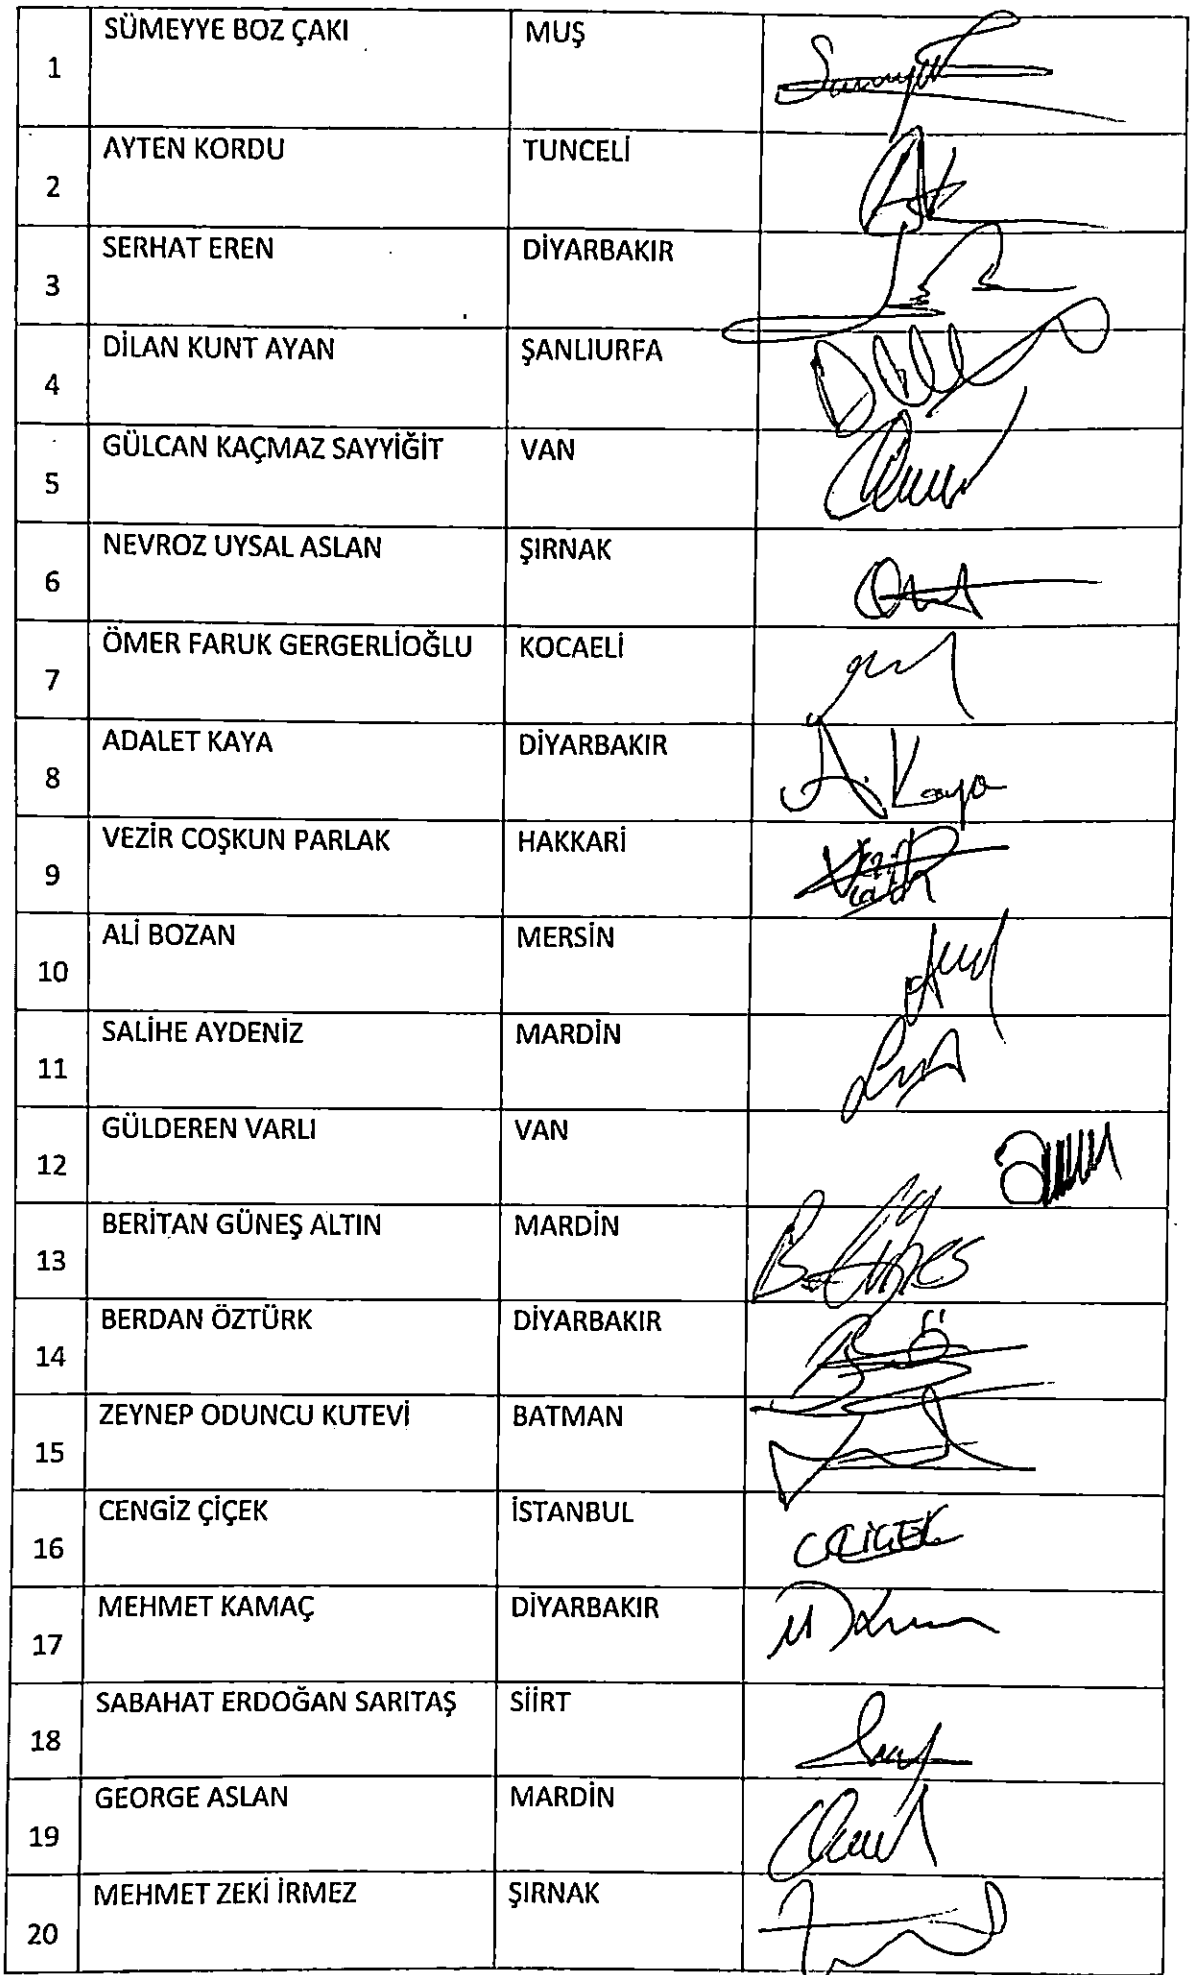 1 SÜMEYYE BOZ ÇAKI MUŞ
2 AYTEN KORDU TUNCELİ
3 SERHAT EREN DİYARBAKIR
4 DİLAN KUNT AYAN ŞANLIURFA
5 GÜLCAN KAÇMAZ SAYYİĞİT VAN
6 NEVROZ UYSAL ASLAN ŞIRNAK
7 ÖMER FARUK GERGERLİOĞLU KOCAELİ
8 ADALET KAYA DİYARBAKIR A. Kaya
9 VEZİR COŞKUN PARLAK HAKKARİ
10 ALİ BOZAN MERSİN
11 SALİHE AYDENİZ MARDİN
12 GÜLDEREN VARLI VAN
13 BERİTAN GÜNEŞ ALTIN MARDİN B. Güneş
14 BERDAN ÖZTÜRK DİYARBAKIR
15 ZEYNEP ODUNCU KUTEVİ BATMAN
16 CENGİZ ÇİÇEK İSTANBUL C. ÇİÇEK
17 MEHMET KAMAÇ DİYARBAKIR
18 SABAHAT ERDOĞAN SARITAŞ SİİRT
19 GEORGE ASLAN MARDİN
20 MEHMET ZEKİ İRMEZ ŞIRNAK